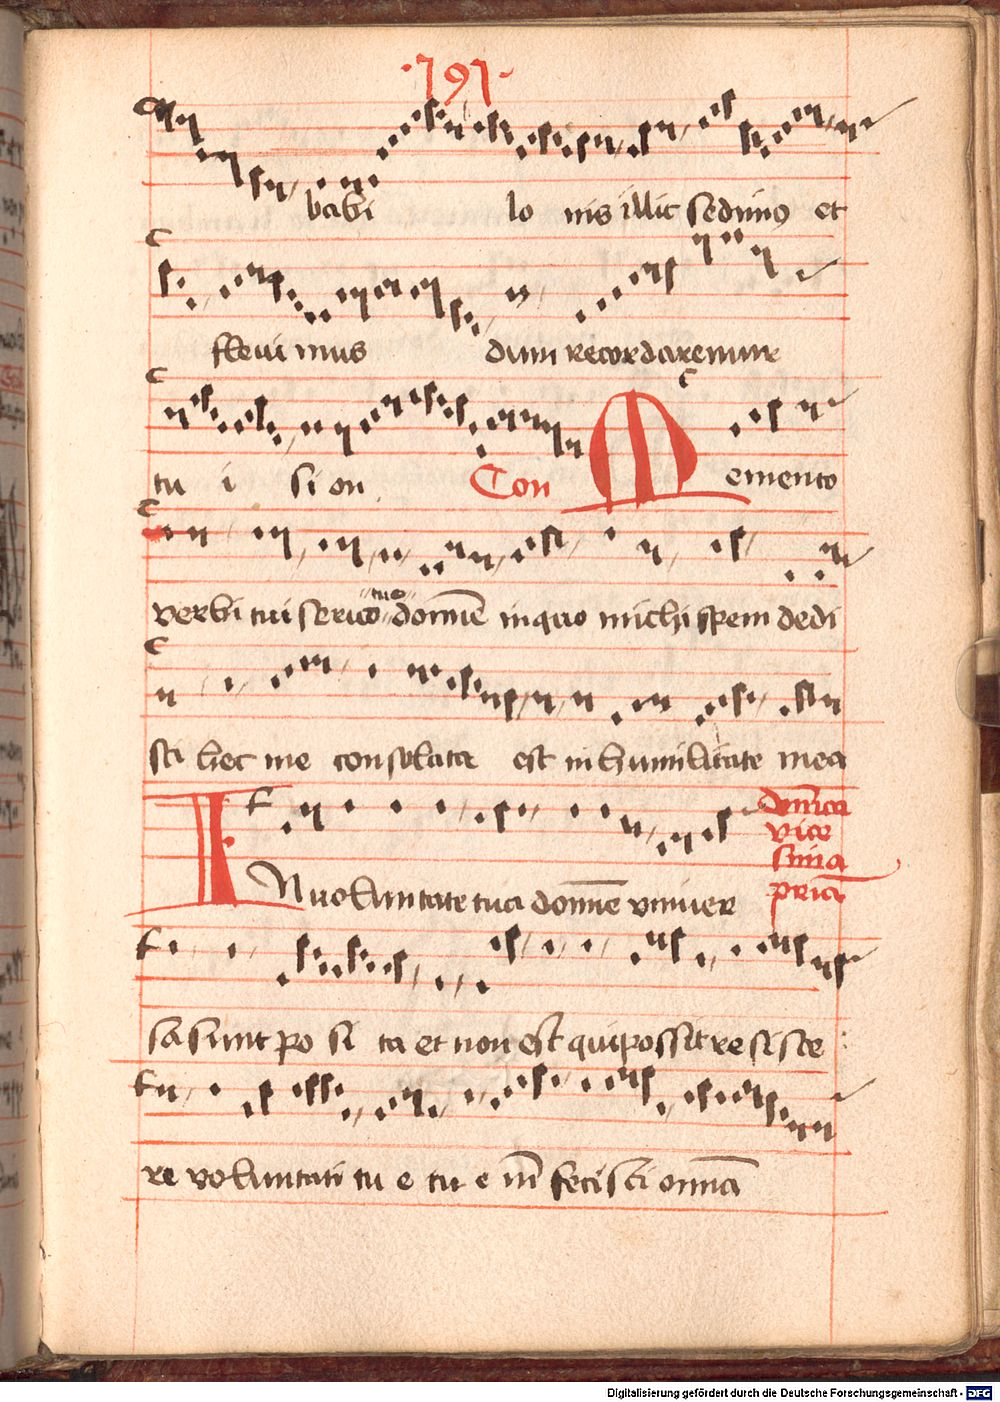 ·191·
babi lo nis illic sedimus et
flevi mus dum recordaremur
tu i si on Con Memento
verbi tui servo tuo domīe in quo michi spem dedi
sti hec me consolata est in humilitate mea
domīca
vice
sima
prīa
IN volūntate tua domīe univer
sa sunt po si ta et non est qui possit resiste
re voluntati tu e tu e īm fecisti omīa
Digitalisierung gefördert durch die Deutsche Forschungsgemeinschaft - DFG